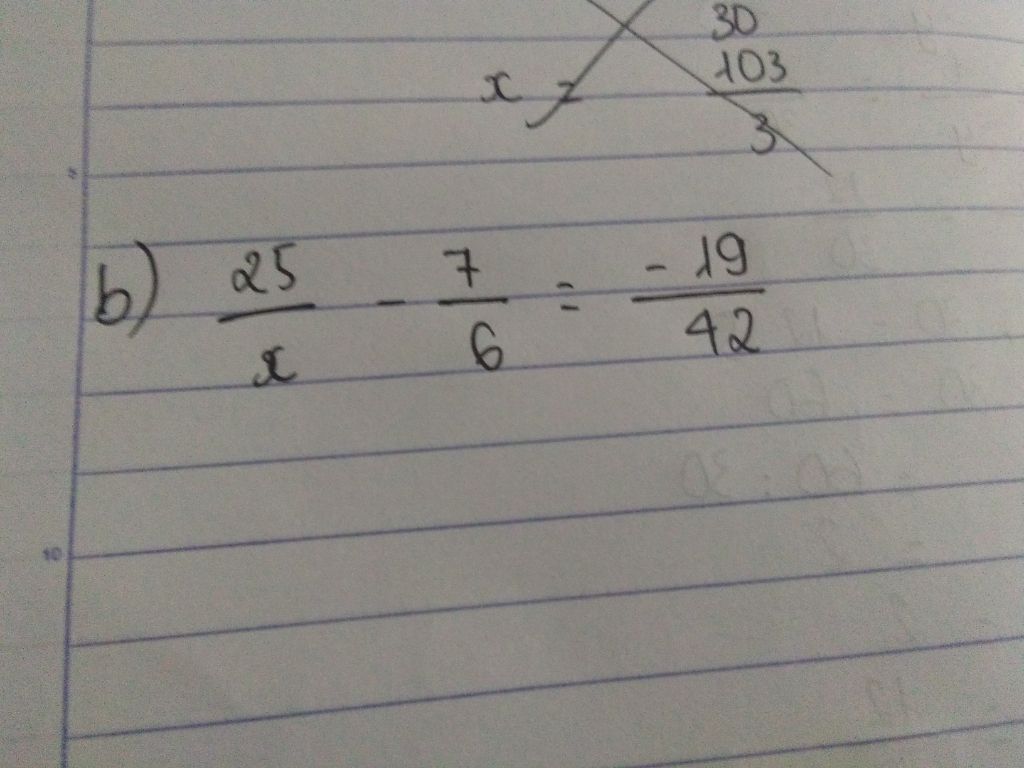 30
x = 103/3
b) 25/x - 7/6 = -19/42
10